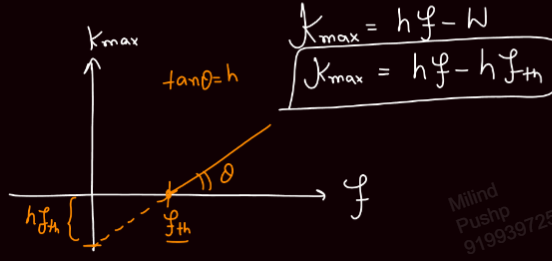 Kmax = hf - W
Kmax
Kmax = hf - hfth
tanθ = h
θ
f
hfth
fth
Milind
Pushp
919939725